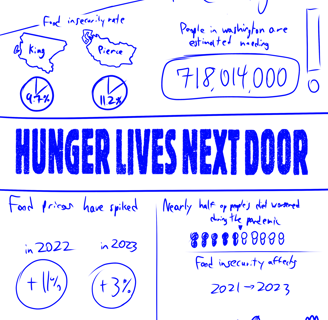 Food insecurity rate
King
Pierce
9.7%
11.2%
People in washington are
estimated needing
718,014,000
HUNGER LIVES NEXT DOOR
Food prices have spiked
in 2022
in 2023
+11%
+3%
Nearly half of people's diet worsened
during the pandemic
Food insecurity affects
2021 → 2023